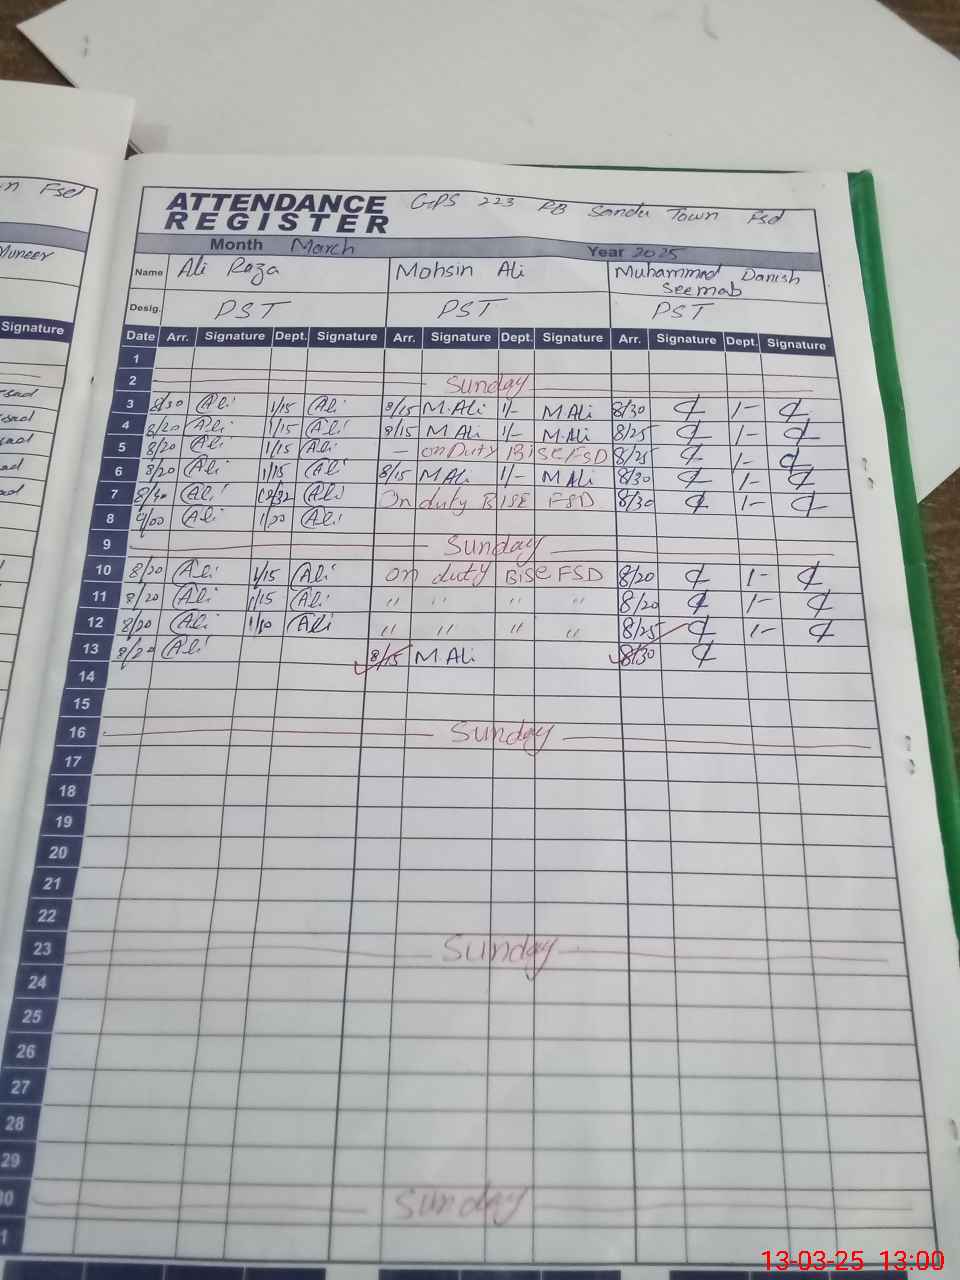 n Fsd
Muneer
Signature
ATTENDANCE GPS 223 RB Sandu Town Fsd
REGISTER
Month March Year 2025
Name Ali Raza Mohsin Ali Muhammad Danish
Seemab
Desig. PST PST PST
Date Arr. Signature Dept. Signature Arr. Signature Dept. Signature Arr. Signature Dept. Signature
1
2 Sunday
3 8/30 Ali 1/15 Ali 8/15 M.Ali 1/- M Ali 8/30 1-
4 8/20 Ali 1/15 Ali 8/15 M Ali 1/- M.Ali 8/25 1-
5 8/20 Ali 1/15 Ali - on Duty BISE FSD 8/25 1-
6 8/20 Ali 1/15 Ali 8/15 M Ali 1/- M Ali 8/30 1-
7 Ali Ali On duty BISE FSD 8/30 1-
8 9/00 Ali Ali
9 Sunday
10 8/20 Ali 1/15 Ali on duty BISE FSD 8/20 1-
11 8/20 Ali 1/15 Ali " " " " 8/20 1-
12 8/20 Ali 1/10 Ali " " " " 8/25 1-
13 8/20 Ali 8/15 M.Ali 8/30
14
15
16 Sunday
17
18
19
20
21
22
23 Sunday
24
25
26
27
28
29
30 Sunday
13-03-25 13:00